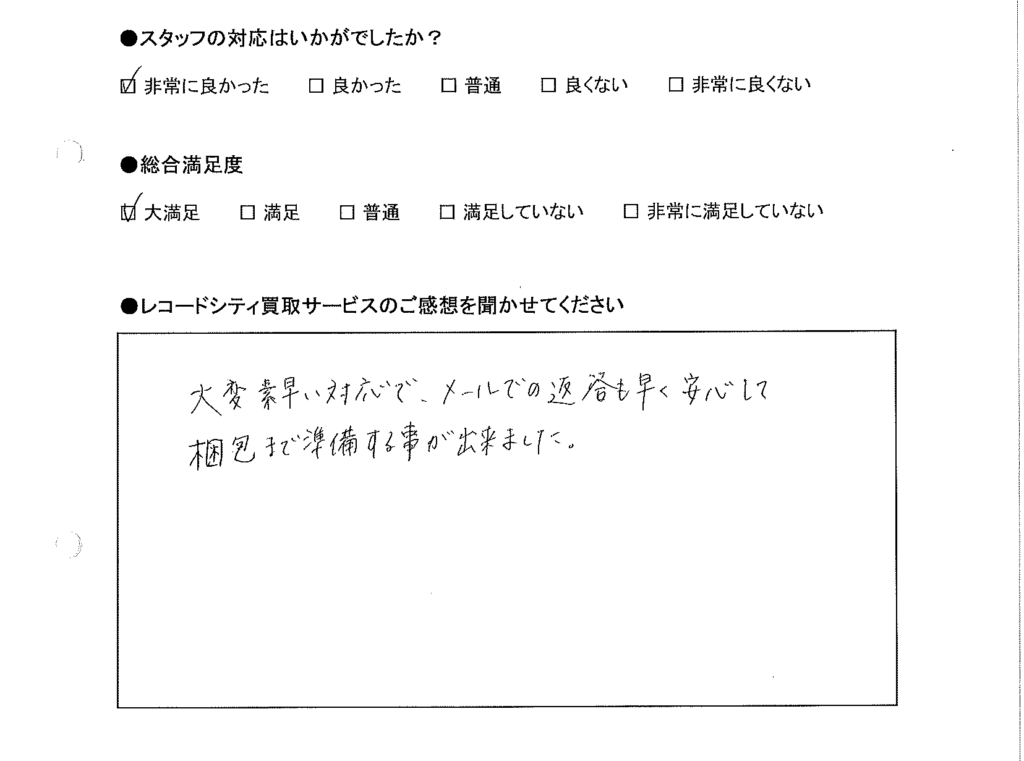 ●スタッフの対応はいかがでしたか？
☑ 非常に良かった □ 良かった □ 普通 □ 良くない □ 非常に良くない
●総合満足度
☑ 大満足 □ 満足 □ 普通 □ 満足していない □ 非常に満足していない
●レコードシティ買取サービスのご感想を聞かせてください
大変素早い対応で、メールでの返答も早く安心して
梱包まで準備する事が出来ました。